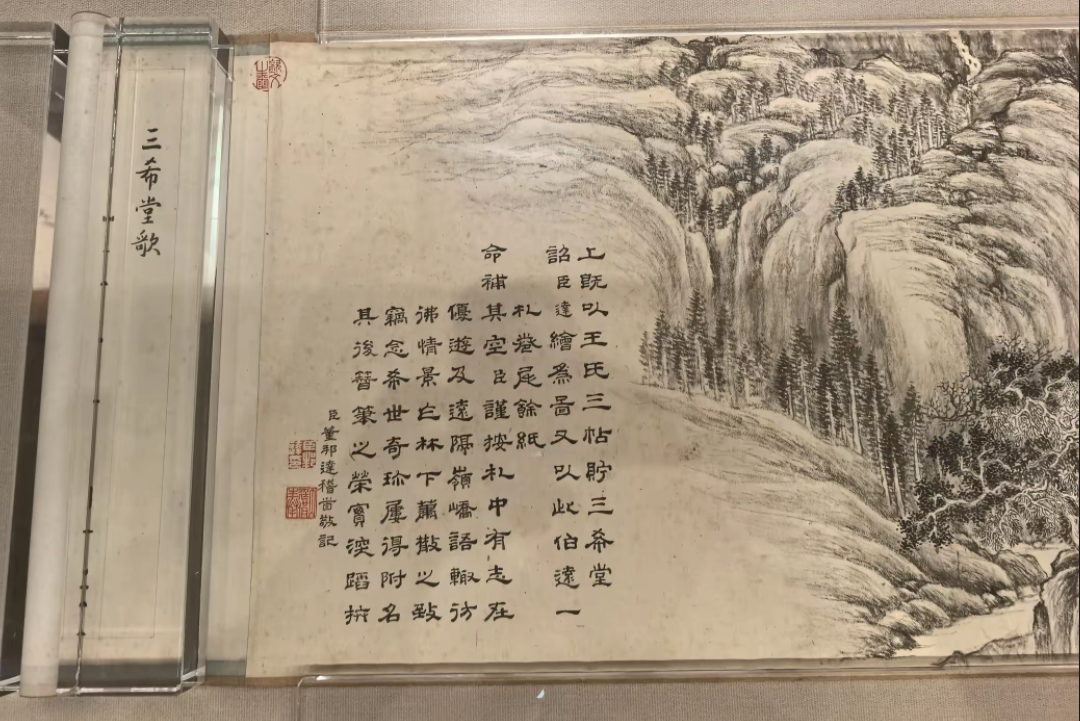 上既以王氏三帖貯三希堂
詔臣達繪為啚又以此伯遠一
札卷尾餘紙
命補其空臣謹按札中有志在
優遊及遠隔嶺嶠語輙彷
彿情景林下蕭散之致
竊念希世奇珎屢得附名
其後簪筆之榮實深蹈抃
臣董邦達稽首敬記
三希堂歌